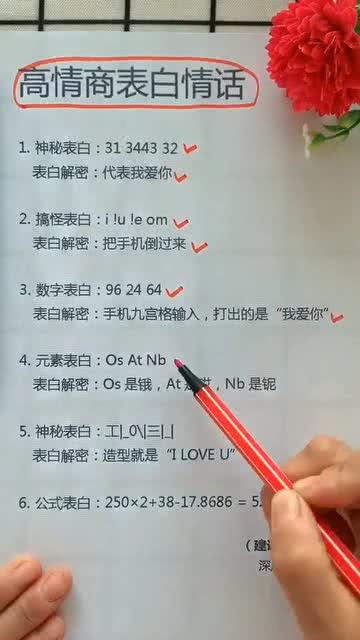 高情商表白情话
1. 神秘表白：31 3443 32
表白解密：代表我爱你
2. 搞怪表白：i !u !e om
表白解密：把手机倒过来
3. 数字表白：96 24 64
表白解密：手机九宫格输入，打出的是“我爱你”
4. 元素表白：Os At Nb
表白解密：Os 是锇，At 是，Nb 是铌
5. 神秘表白：工|_0\|三|_|
表白解密：造型就是“I LOVE U”
6. 公式表白：250×2+38-17.8686 = 5.
（建
深